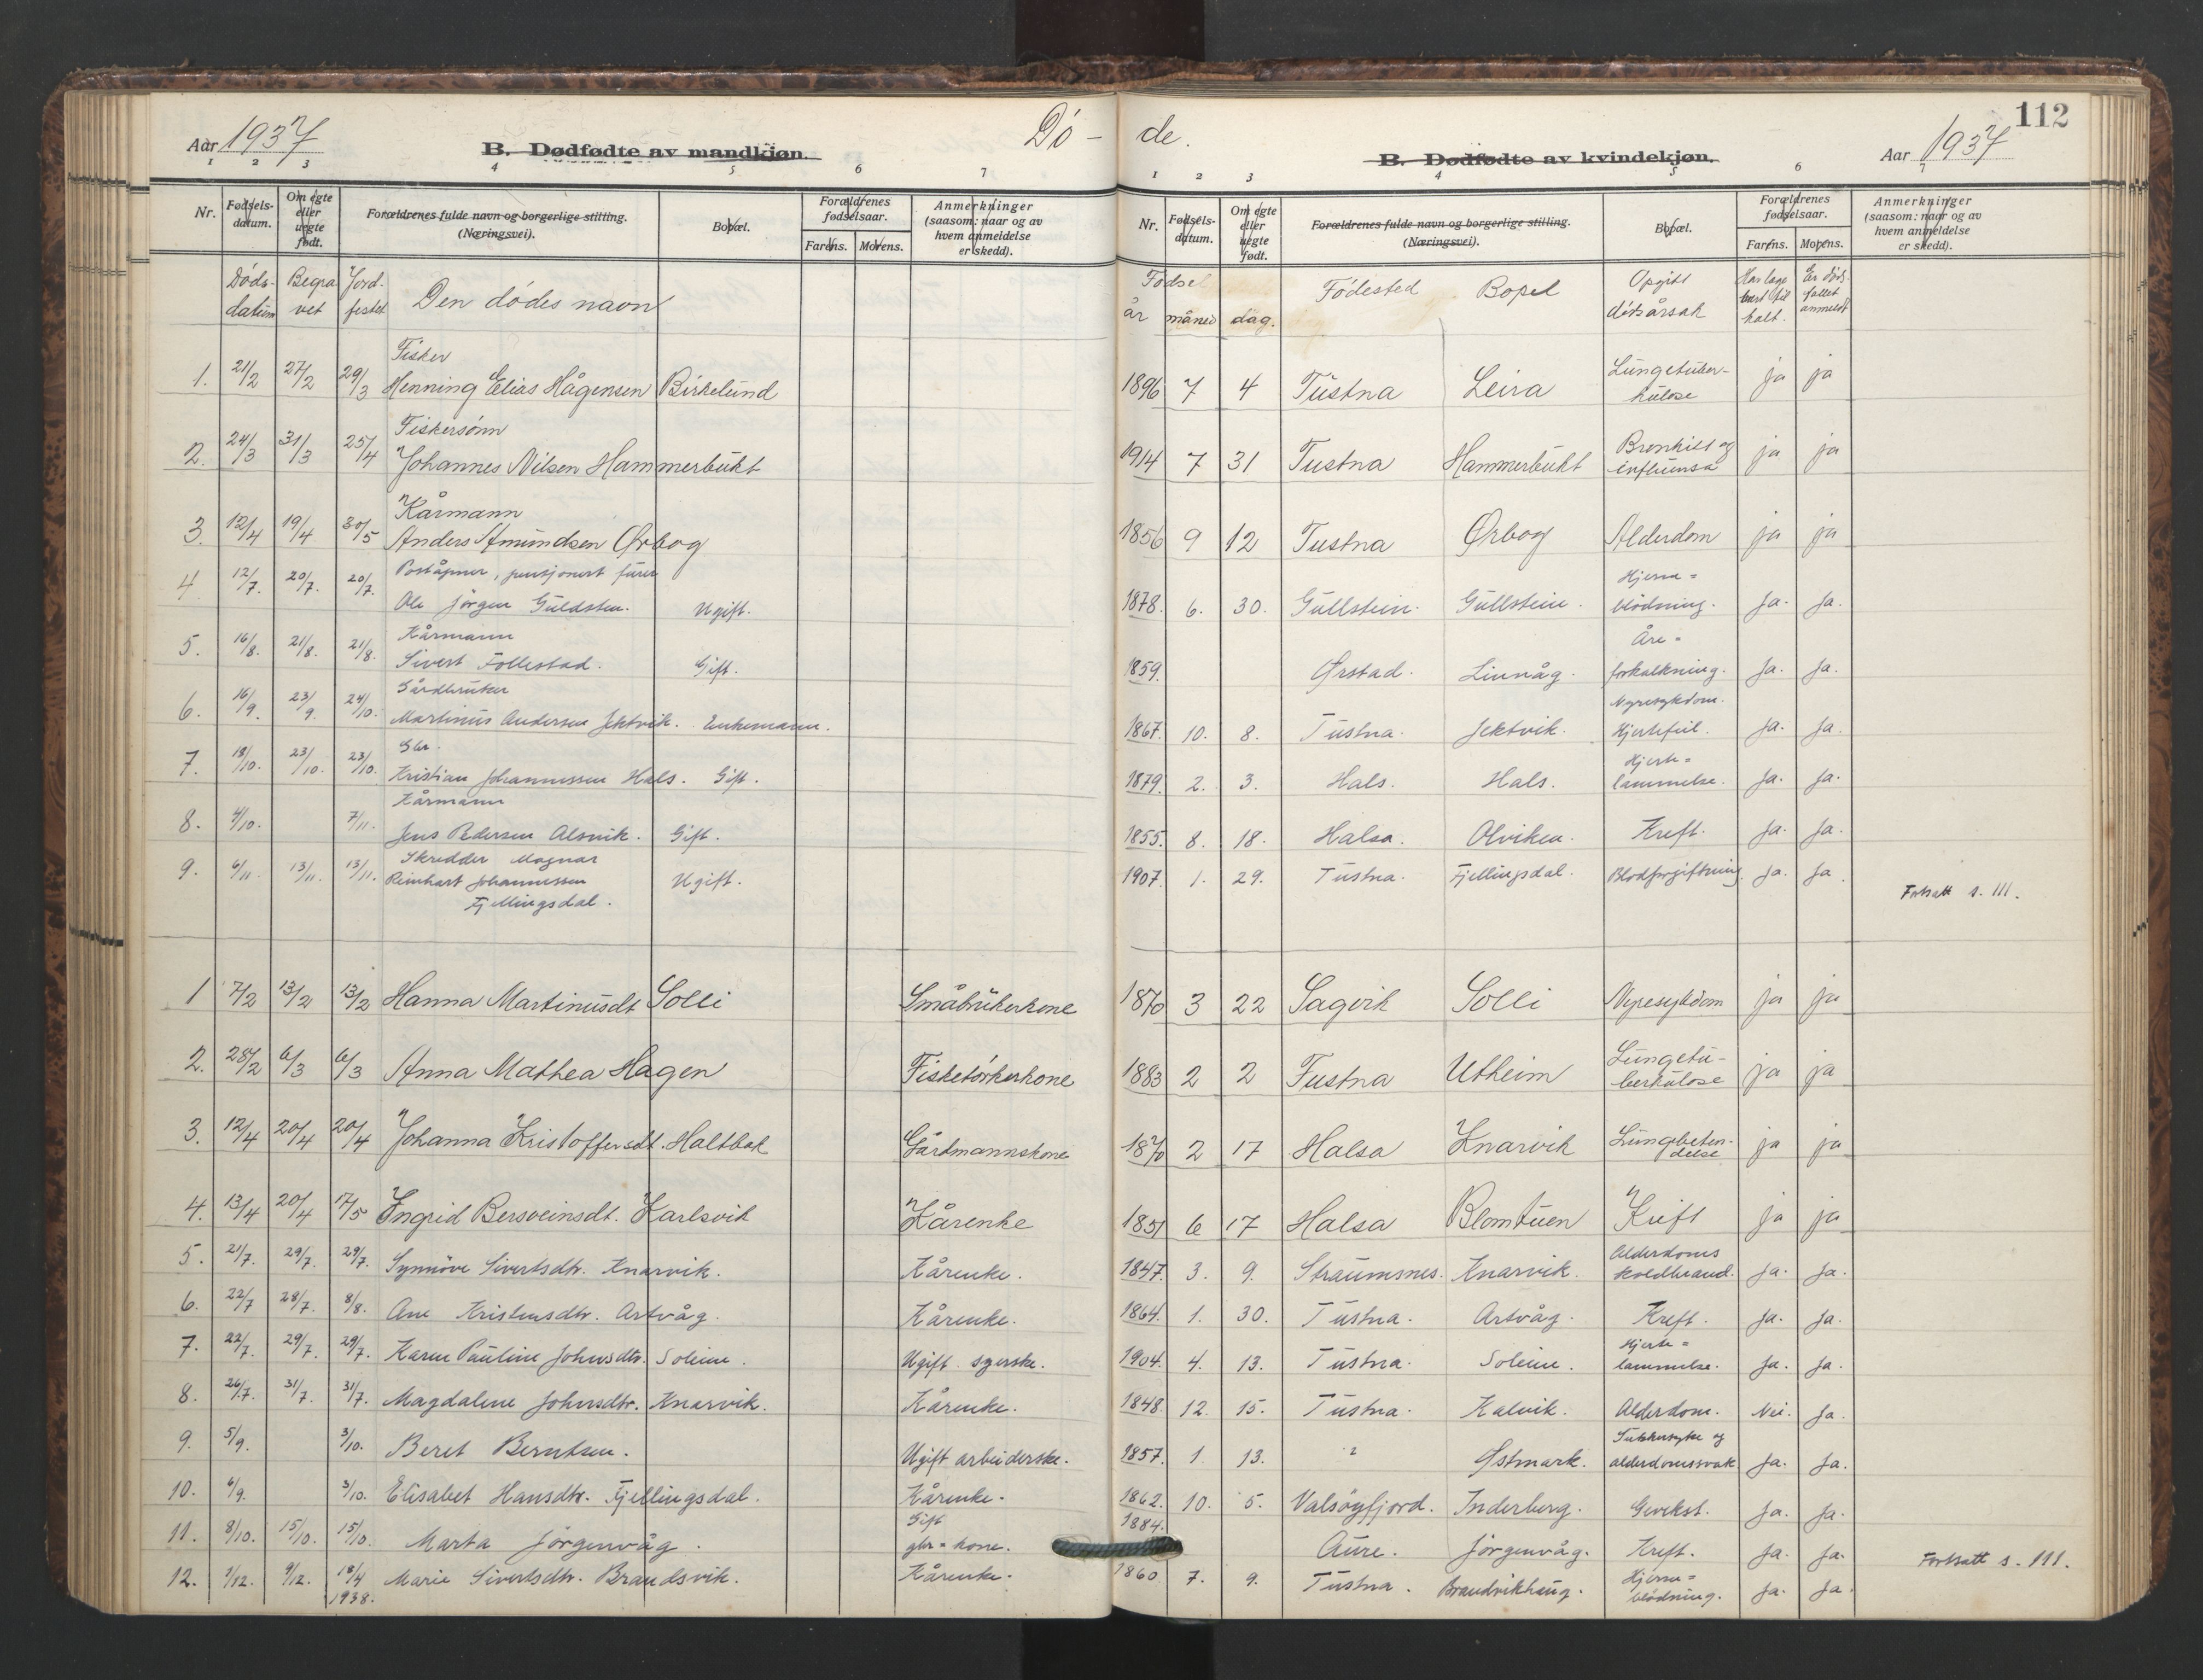 112
Aar 1937 Dö - de. Aar 1937
B. Dødfødte av mandkjøn. B. Dødfødte av kvindekjøn.
1 2 3 4 5 6 7 1 2 3 4 5 6 7
Nr. Fødsels-datum. Om egte eller uegte født. Forældrenes fulde navn og borgerlige stilling. (Næringsvei). Bopæl. Forældrenes fødselsaar. Farens. Morens. Anmerkninger (saasom: naar og av hvem anmeldelse er skedd).
Nr. Fødsels-datum. Om egte eller uegte født. Forældrenes fulde navn og borgerlige stilling. (Næringsvei). Bopæl. Forældrenes fødselsaar. Farens. Morens. Anmerkninger (saasom: naar og av hvem anmeldelse er skedd).
Döds-datum Begravet Jordfestet Den dödes navn Födsel år måned dag. Födested Bopel Opgitt dödsårsak Har læge vært tilkalt. Er dödsfallet anmeldt
Fisker
1. 21/2 27/2 29/3 Henning Elias Hågensen Birkelund 1896 7 4 Tustna Leira Lungetuberkulose ja ja
Fiskersönn
2. 24/3 31/3 25/4 Johannes Nilsen Hammerbukt 1914 7 31 Tustna Hammerbukt Bronkitt og influensa ja ja
Kårmann
3. 12/4 19/4 30/5 Anders Amundsen Ørbog 1856 9 12 Tustna Ørbog Alderdom ja ja
Poståpner, pensjonert furer
4. 12/7. 20/7. 20/7. Ole Jörgen Guldsten. Ugift. 1878. 6. 30. Gullstein. Gullstein. Hjerne=blödning. Ja. Ja.
Kårmann
5. 16/8. 21/8. 21/8. Sivert Follestad. Gift. 1859. Ørstad. Linnåg. Åre=forkalkning. Ja. Ja.
Gårdbruker
6. 16/9. 23/9. 24/10. Martinus Andersen Jektvik. Enkemann. 1867. 10. 8. Tustna. Jektvik. Nyresykdom. Hjertefeil. Ja. Ja.
Gbr.
7. 18/10. 23/10. 23/10. Kristian Johannessen Hals. Gift. 1879. 2. 3. Hals. Hals. Hjerte=lammelse. Ja. Ja.
Kårmann
8. 4/10. 7/11. Jens Pedersen Alsvik. Gift. 1855. 8. 18. Halsa. Olviken. Kreft. Ja. Ja.
Skredder Magnar
9. 6/11. 13/11. 13/11. Reinhart Johannessen Fjellingsdal. Ugift. 1907. 1. 29. Tustna. Fjellingsdal. Blodforgiftning. Ja. Ja. Fortsatt s. 111.
1 7/2 13/2 13/2 Hanna Martinusdt Solli Småbrukerkone 1870 3 22 Sagvik Solli Nyresykdom ja ja
2. 28/2 6/3 6/3 Anna Mathea Hagen Fisketörkerkone 1883 2 2 Tustna Utheim Lungetuberkulose ja ja
3. 12/4 20/4 20/4 Johanna Kristoffersdt. Haltbak Gårdmannskone 1870 2 17 Halsa Knarvik Lungebetendelse ja ja
4. 13/4 20/4 17/5 Ingrid Bersveinsdt. Karlsvik Kårenke 1851 6 17 Halsa Blomtuen Kreft ja ja
5. 21/7. 29/7. 29/7. Synnöve Sivertsdtr. Knarvik. Kårenke. 1847. 3. 9. Straumsnes. Knarvik. Alderdoms koldbrand. Ja. Ja.
6. 22/7 28/7. 8/8. Ane Kristensdtr. Artvåg. Kårenke. 1864. 1. 30. Tustna. Artvåg. Kreft. Ja. Ja.
7. 22/7. 29/7. 29/7. Karen Pauline Johnsdtr. Soleim. Ugift syerske. 1904. 4. 13. Tustna. Soleim. Hjerte=lammelse. Ja. Ja.
8. 26/7. 31/7. 31/7. Magdalene Johnsdtr. Knarvik. Kårenke. 1848. 12. 15. Tustna. Kalvik. Alderdom. Nei. Ja.
9. 5/9. 3/10. Beret Berntsen. Ugift arbeiderske. 1857. 1. 13. ? Østmark. Sukkersyke og alderdomssvak. Ja. Ja.
10. 6/9. 3/10. Elisabet Hansdtr. Fjellingsdal. Kårenke. 1862. 10. 5. Valsöyfjord. Inderberg. Ja. Ja.
11. 8/10. 15/10. 15/10. Marta Jörgenvåg. Gift gbr=kone. 1884. Aure. Jörgenvåg. Kreft. Ja. Ja.
12. 1/12. 9/12. 18/4 1938. Marie Sivertsdtr. Brandsvik. Kårenke. 1860 7. 9. Tustna. Brandvikhaug. Hjerne=blödning. Ja. Ja. Fortsatt s. 111.